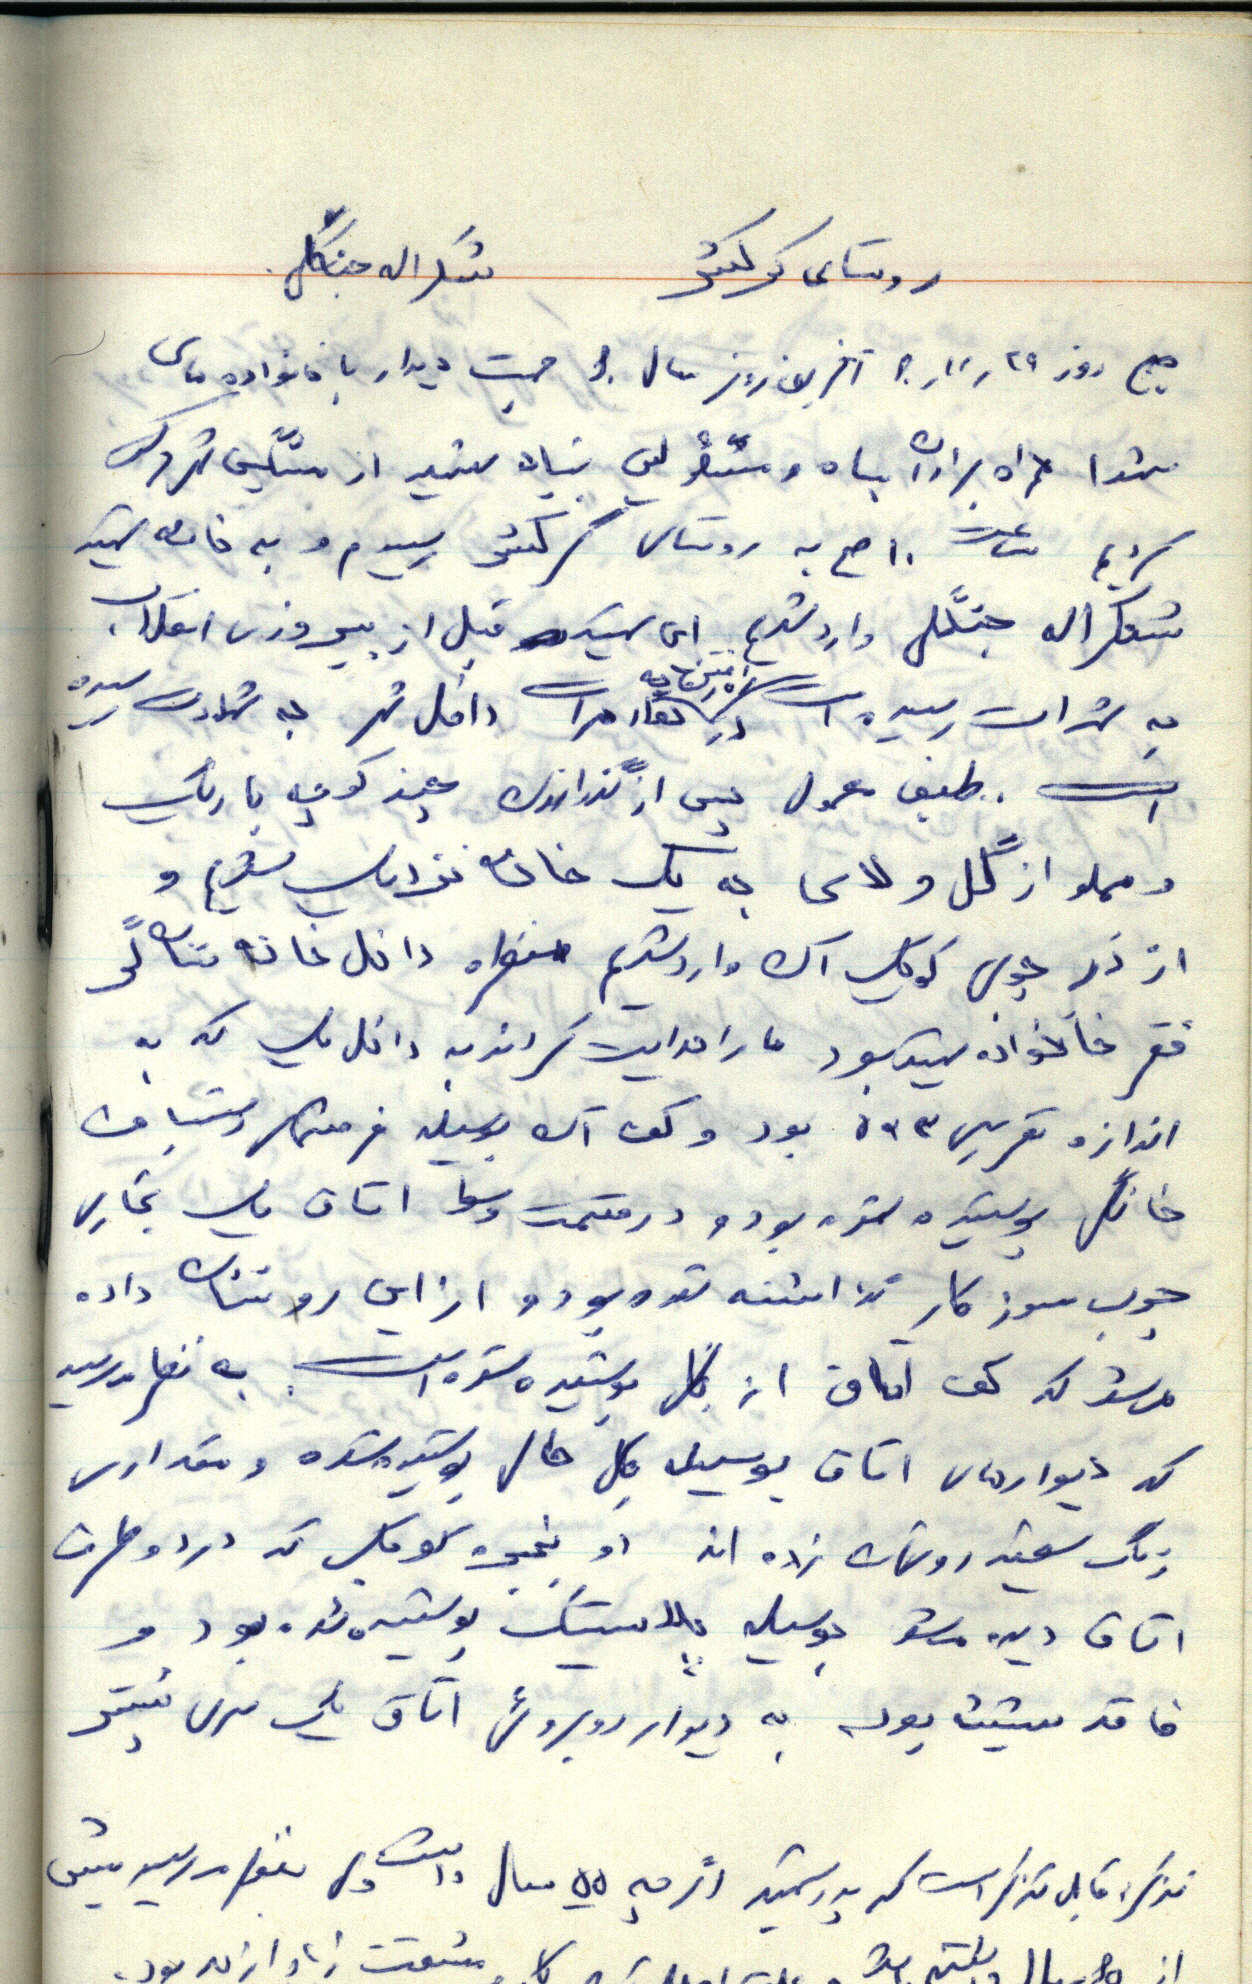 روستای کرکتی شکراله جنگلی
صبح روز ۲۹ر۱۲ر۶۰ آخرین روز سال ۶۰ جهت دیدار با خانواده های
شهدا همراه برادران سپاه و مسئولین بنیاد شهید از حرکت
کردیم ساعت ۱۰ صبح به روستای کرکتی رسیدیم و به خانه شهید
شکراله جنگلی وارد شدیم این شهید قبل از پیروزی انقلاب
به شهادت رسیده است در تظاهرات داخل شهر به شهادت رسیده
است. طبق معمول پس از گذراندن چند کوچه باریک
و مملو از گل و لای به یک خانه نزدیک شدیم و
از در چوبی کوچک آن وارد شدیم منظره داخل خانه نشانگر
فقر خانواده شهید بود ما را هدایت کردند به داخل یک که به
اندازه تقریبی ۳×۵ بود و کف آن بوسیله فرشهای دستباف
خانگی پوشیده شده بود و در قسمت وسط اتاق یک بخاری
چوب سوز کار گذاشته شده بود و از این رو نشان داده
میشد که کف اتاق از گل پوشیده شده است. به نظر میرسید
که دیوارهای اتاق بوسیله گل پوشیده شده و مقداری
رنگ سفید روی آن زده اند دو پنجره کوچک که در دو طرف
اتاق دیده میشد بوسیله پلاستیک پوشیده شده بود و
فاقد شیشه بود به دیوار روبروئی اتاق یک سری
تذکر: قابل تذکر است که پدر شهید اگر چه ۵۵ سال داشت ولی بنظر میرسید بیش
از سال داشته باشد مشقت زیاد بود.